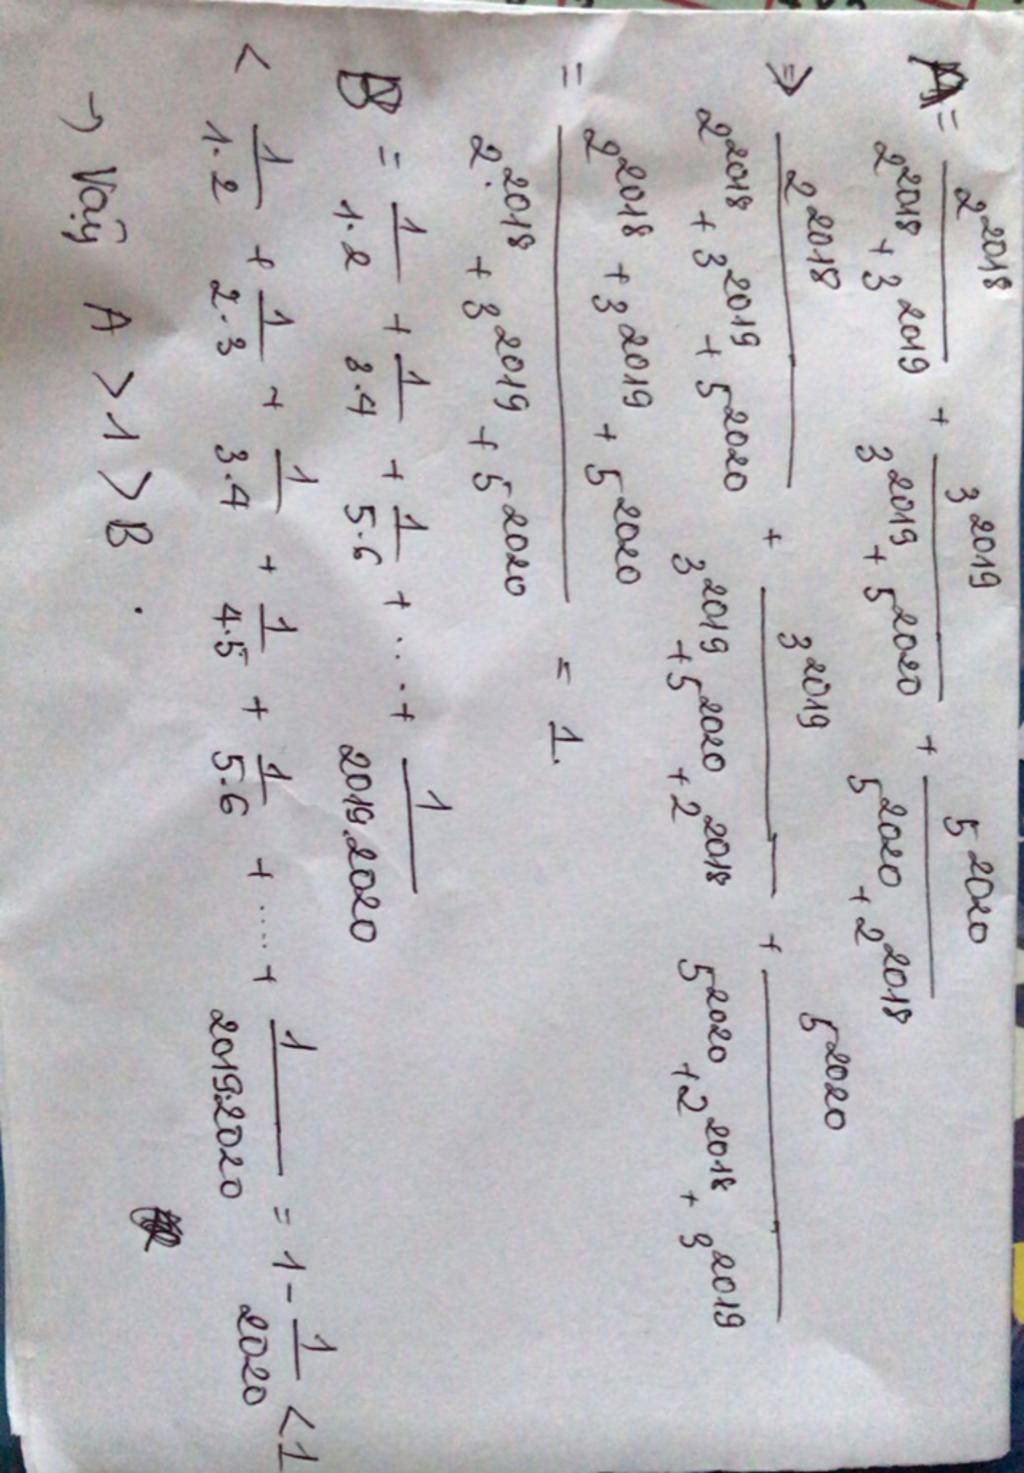 A = 2^2018/(2^2018 + 3^2019) + 3^2019/(3^2019 + 5^2020) + 5^2020/(5^2020 + 2^2018)
⇒ 2^2018/(2^2018 + 3^2019 + 5^2020) + 3^2019/(3^2019 + 5^2020 + 2^2018) + 5^2020/(5^2020 + 2^2018 + 3^2019)
= (2^2018 + 3^2019 + 5^2020)/(2^2018 + 3^2019 + 5^2020) = 1.
B = 1/1.2 + 1/3.4 + 1/5.6 + ... + 1/2019.2020
< 1/1.2 + 1/2.3 + 1/3.4 + 1/4.5 + 1/5.6 + .... + 1/2019.2020 = 1 - 1/2020 < 1
→ Vậy A > 1 > B.